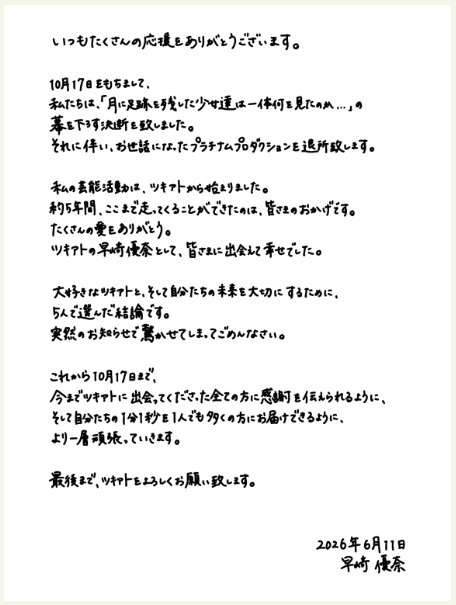 いつもたくさんの応援をありがとうございます。
10月17日をもちまして、
私たちは、「月に足跡を残した少女達は一体何を見たのか…」の
幕を下ろす決断を致しました。
それに伴い、お世話になったプラチナムプロダクションを退所致します。
私の芸能活動は、ツキアトから始まりました。
約5年間、ここまで走ってくることができたのは、皆さまのおかげです。
たくさんの愛をありがとう。
ツキアトの早崎優奈として、皆さまに出会えて幸せでした。
大好きなツキアトと、そして自分たちの未来を大切にするために、
5人で選んだ結論です。
突然のお知らせで驚かせてしまってごめんなさい。
これから10月17日まで、
今までツキアトに出会ってくださった全ての方に感謝を伝えられるように、
そして自分たちの1分1秒を1人でも多くの方にお届けできるように、
より一層頑張っていきます。
最後まで、ツキアトをよろしくお願い致します。
2026年6月11日
早崎 優奈